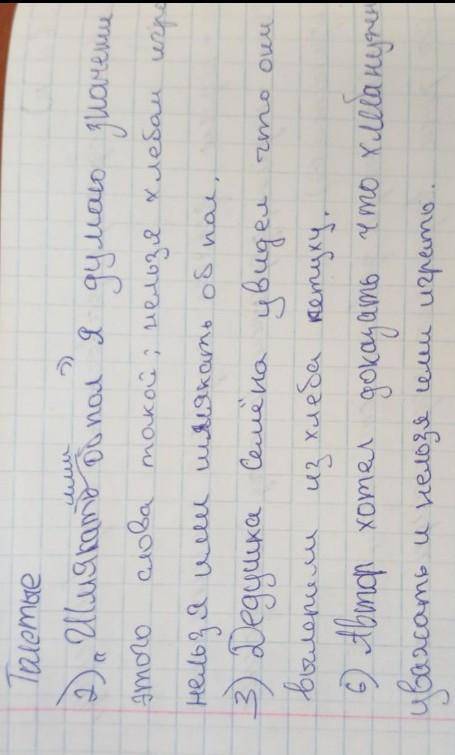 2) "Шмякать ими об пол" Я думаю значение
этого слова такой; нельзя хлебом игр
нельзя ими шмякать об пол.
3) Дедушка Семёна увидел что они
вылопили из хлеба петуху.
6) Автор хотел доказать что хлеба нужн
уважать и нельзя ими играть.